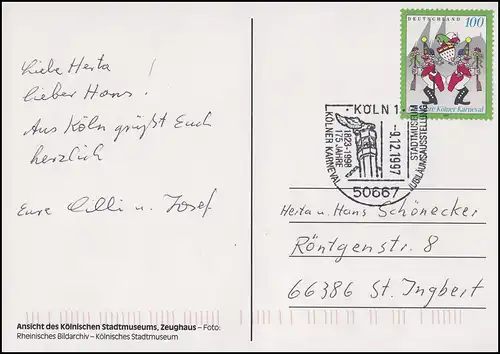 Liebe Herta !
lieber Hans !
Aus Köln grüßt Euch
herzlich
Eure Cilli u. Josef
Ansicht des Kölnischen Stadtmuseums, Zeughaus – Foto:
Rheinisches Bildarchiv – Kölnisches Stadtmuseum
DEUTSCHLAND 100
Kölner Karneval
· KÖLN 1 ·
1823-1998
175 JAHRE
KÖLNER KARNEVAL
-9.12.1997
STADTMUSEUM
JUBILÄUMSAUSSTELLUNG
50667
Herta u. Hans Schönecker
Röntgenstr. 8
66386 St. Ingbert